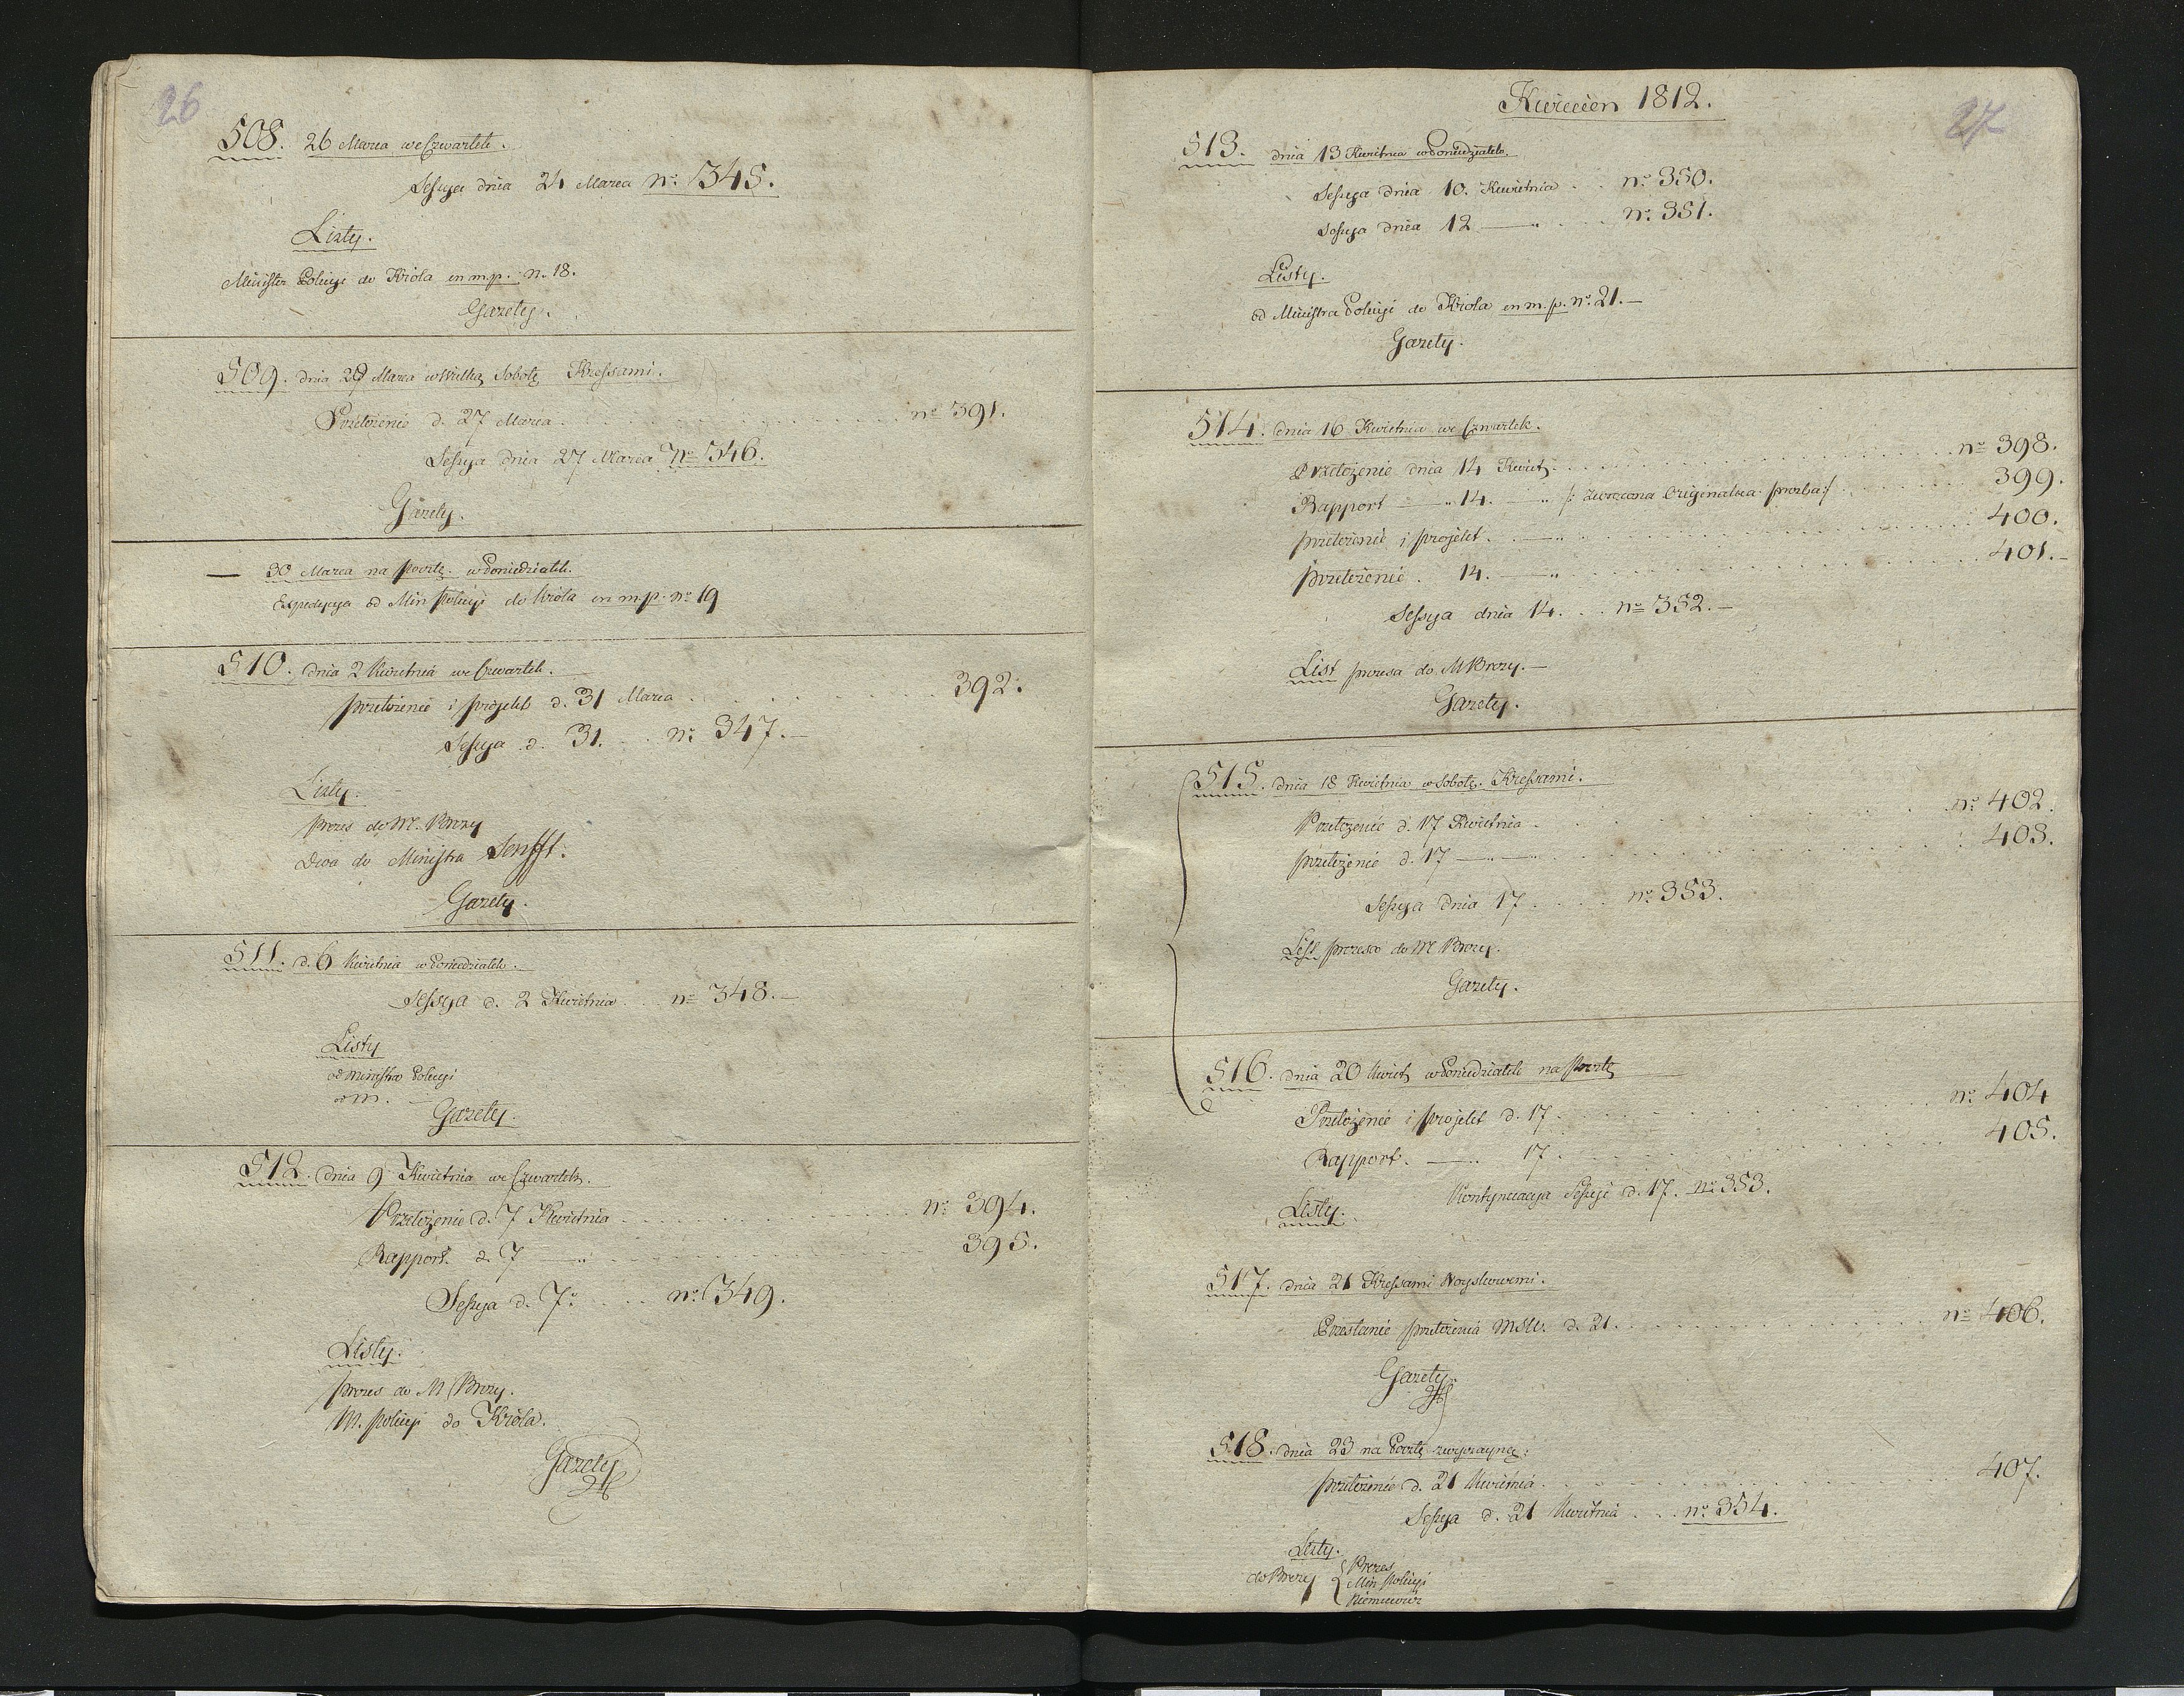 26
508. 26 Marca we Czwartek.
Sessya dnia 24 Marca no 345.
Listy.
Minister Policyi do Króla en m.p. n. 18.
Gazety.
509. dnia 28 Marca w Wielką Sobotę Kressami.
Przełożenie d. 27 Marca . . . no 391.
Sessya dnia 27 Marca No 346.
Gazety.
— 30 Marca na Pocztę w Poniedziałek.
Expedycya od Min Policyi do Króla en m.p. no 19
510. dnia 2 Kwietnia we Czwartek.
przełożenie i projekt d. 31 Marca . . . 392.
Sessya d. 31. . . no 347.—
Listy.
Prezes do M. Brezy
Dwa do Ministra Senfft.
Gazety.
511. d. 6 Kwietnia w Poniedziałek.
Sessya d. 2 Kwietnia . . no 348.—
Listy
od Ministra Policyi
od M. —
Gazety.
512. dnia 9 Kwietnia we Czwartek.
Przełożenie d. 7 Kwietnia . . . no 394.
Rapport. d. 7 —„— . . . 395.
Sessya d. 7o . . . no 349.
Listy.
Prezes do M Brezy.
M. Policyi do Króla.
Gazety
27
Kwiecień 1812.
513. dnia 13 Kwietnia w Poniedziałek.
Sessya dnia 10. Kwietnia . . no 350.
Sessya dnia 12 —„— . . no 351.
Listy.
od Ministra Policyi do Króla en m.p. no 21.—
Gazety.
514. dnia 16 Kwietnia we Czwartek.
Przełożenie dnia 14 Kwiet. . . . no 398.
Rapport —„ 14. —„ /: zwrócona originalna prozba:/ . . . 399.
przełożenie i projekt . —„ . . . 400.
przełożenie . 14. —„ . . . 401.—
Sessya dnia 14. . . no 352.—
List prezesa do M Brezy.—
Gazety.
515. dnia 18 Kwietnia w Sobotę. Kressami.
Przełożenie d. 17 Kwietnia . . . no 402.
przełożenie d. 17 —„—„ . . . 403.
Sessya dnia 17 . . . no 353.
List prezesa do M Brezy.
Gazety.
516. dnia 20 Kwiet. w Poniedziałek na Pocztę
Przełożenie i projekt d. 17. . . . no 404
Rapport. —„ 17. . . . 405.
Kontynuacya Sessyi d. 17. no 353.
Listy.
517. dnia 21 Kressami
Przesłanie przełożenia MSW. d. 21. . . . no 406.
Gazety
518. dnia 23 na Pocztę zwyczayną.
przełożenie d. 21 Kwietnia . . . 407.
Sessya d. 21 Kwietnia . . . no 354.
Listy.
do Brezy { Prezes
Min Policyi
Niemcewicz